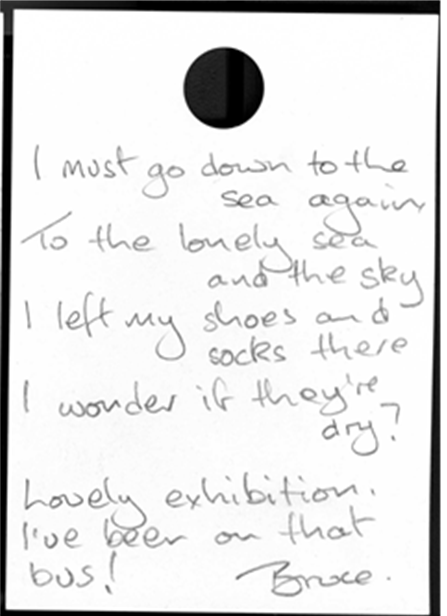 I must go down to the
sea again,
To the lonely sea
and the sky
I left my shoes and
socks there
I wonder if they're
dry?
Lovely exhibition.
I've been on that
bus! Bruce.